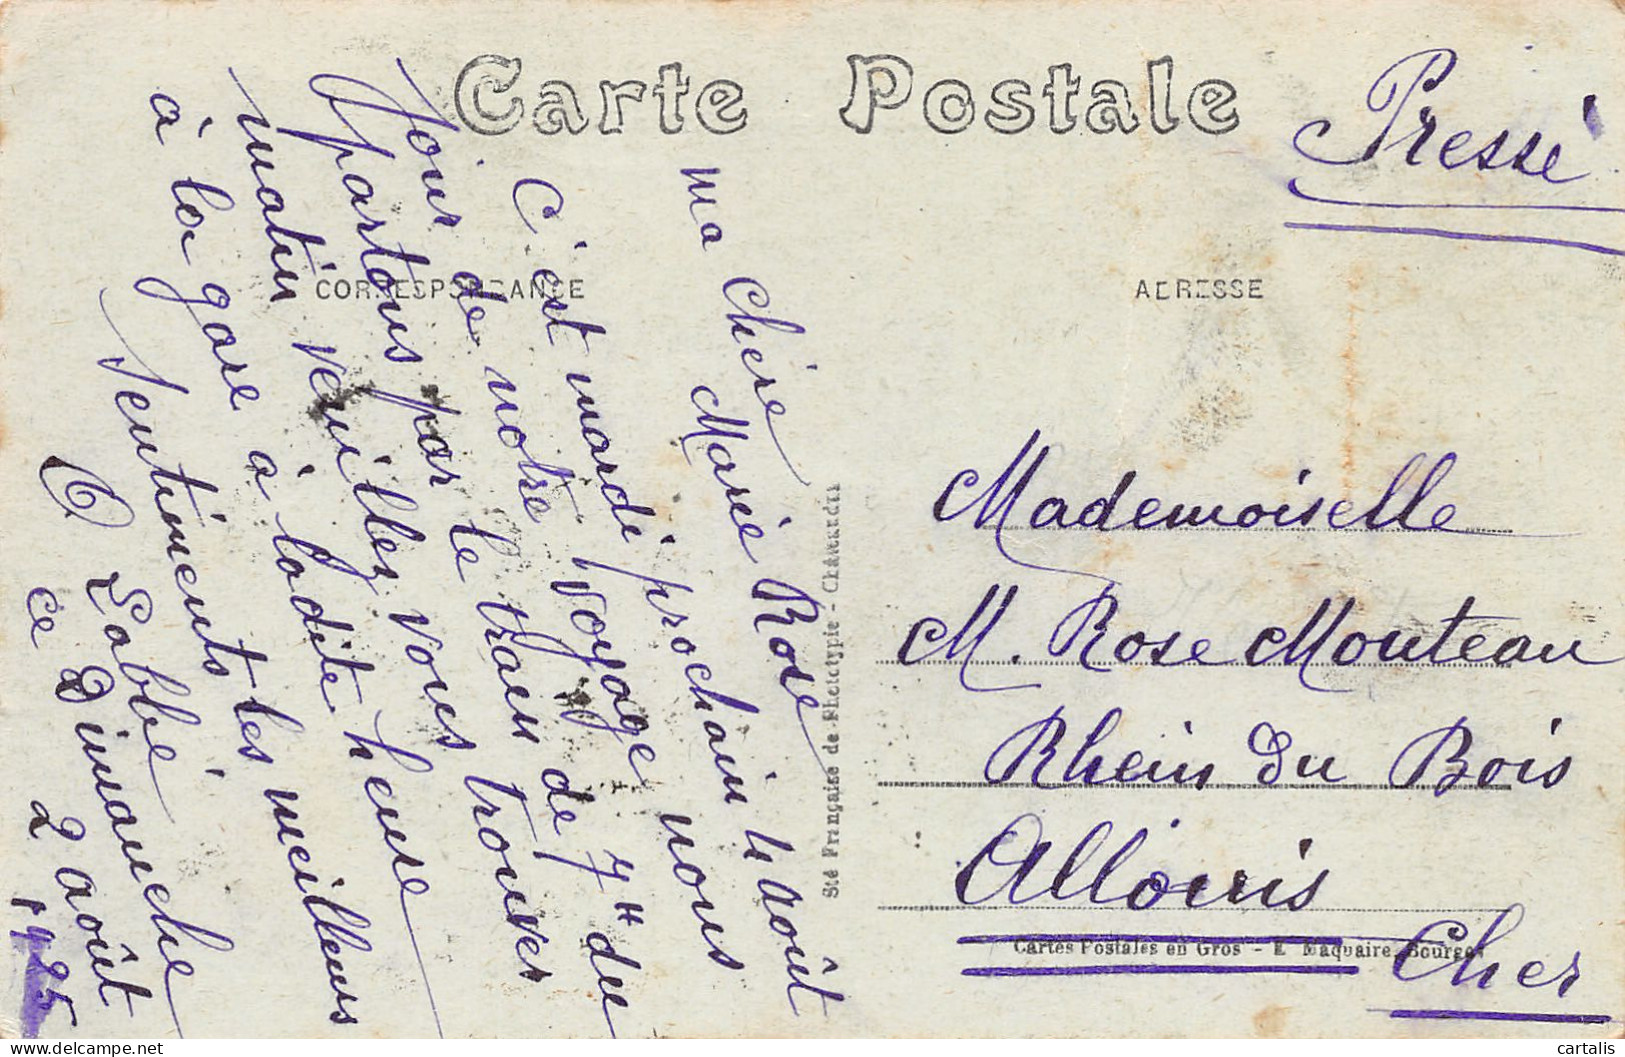 Carte Postale
Pressé
CORRESPONDANCE
ADRESSE
ma Chère Marie Rose
C'est mardi prochain 4 août
jour de notre voyage nous
partons par le train de 7h du
matin veuillez vous trouver
à la gare à ladite heure
Sentiments les meilleurs
Labbé
ce Dimanche
2 août
1925
Sté Française de Phototypie - Châteaudun
Mademoiselle
M. Rose Mouteau
Rhein du Bois
Allouis
Cher
Cartes Postales en Gros - E. Maquaire, Bourges
cartalis